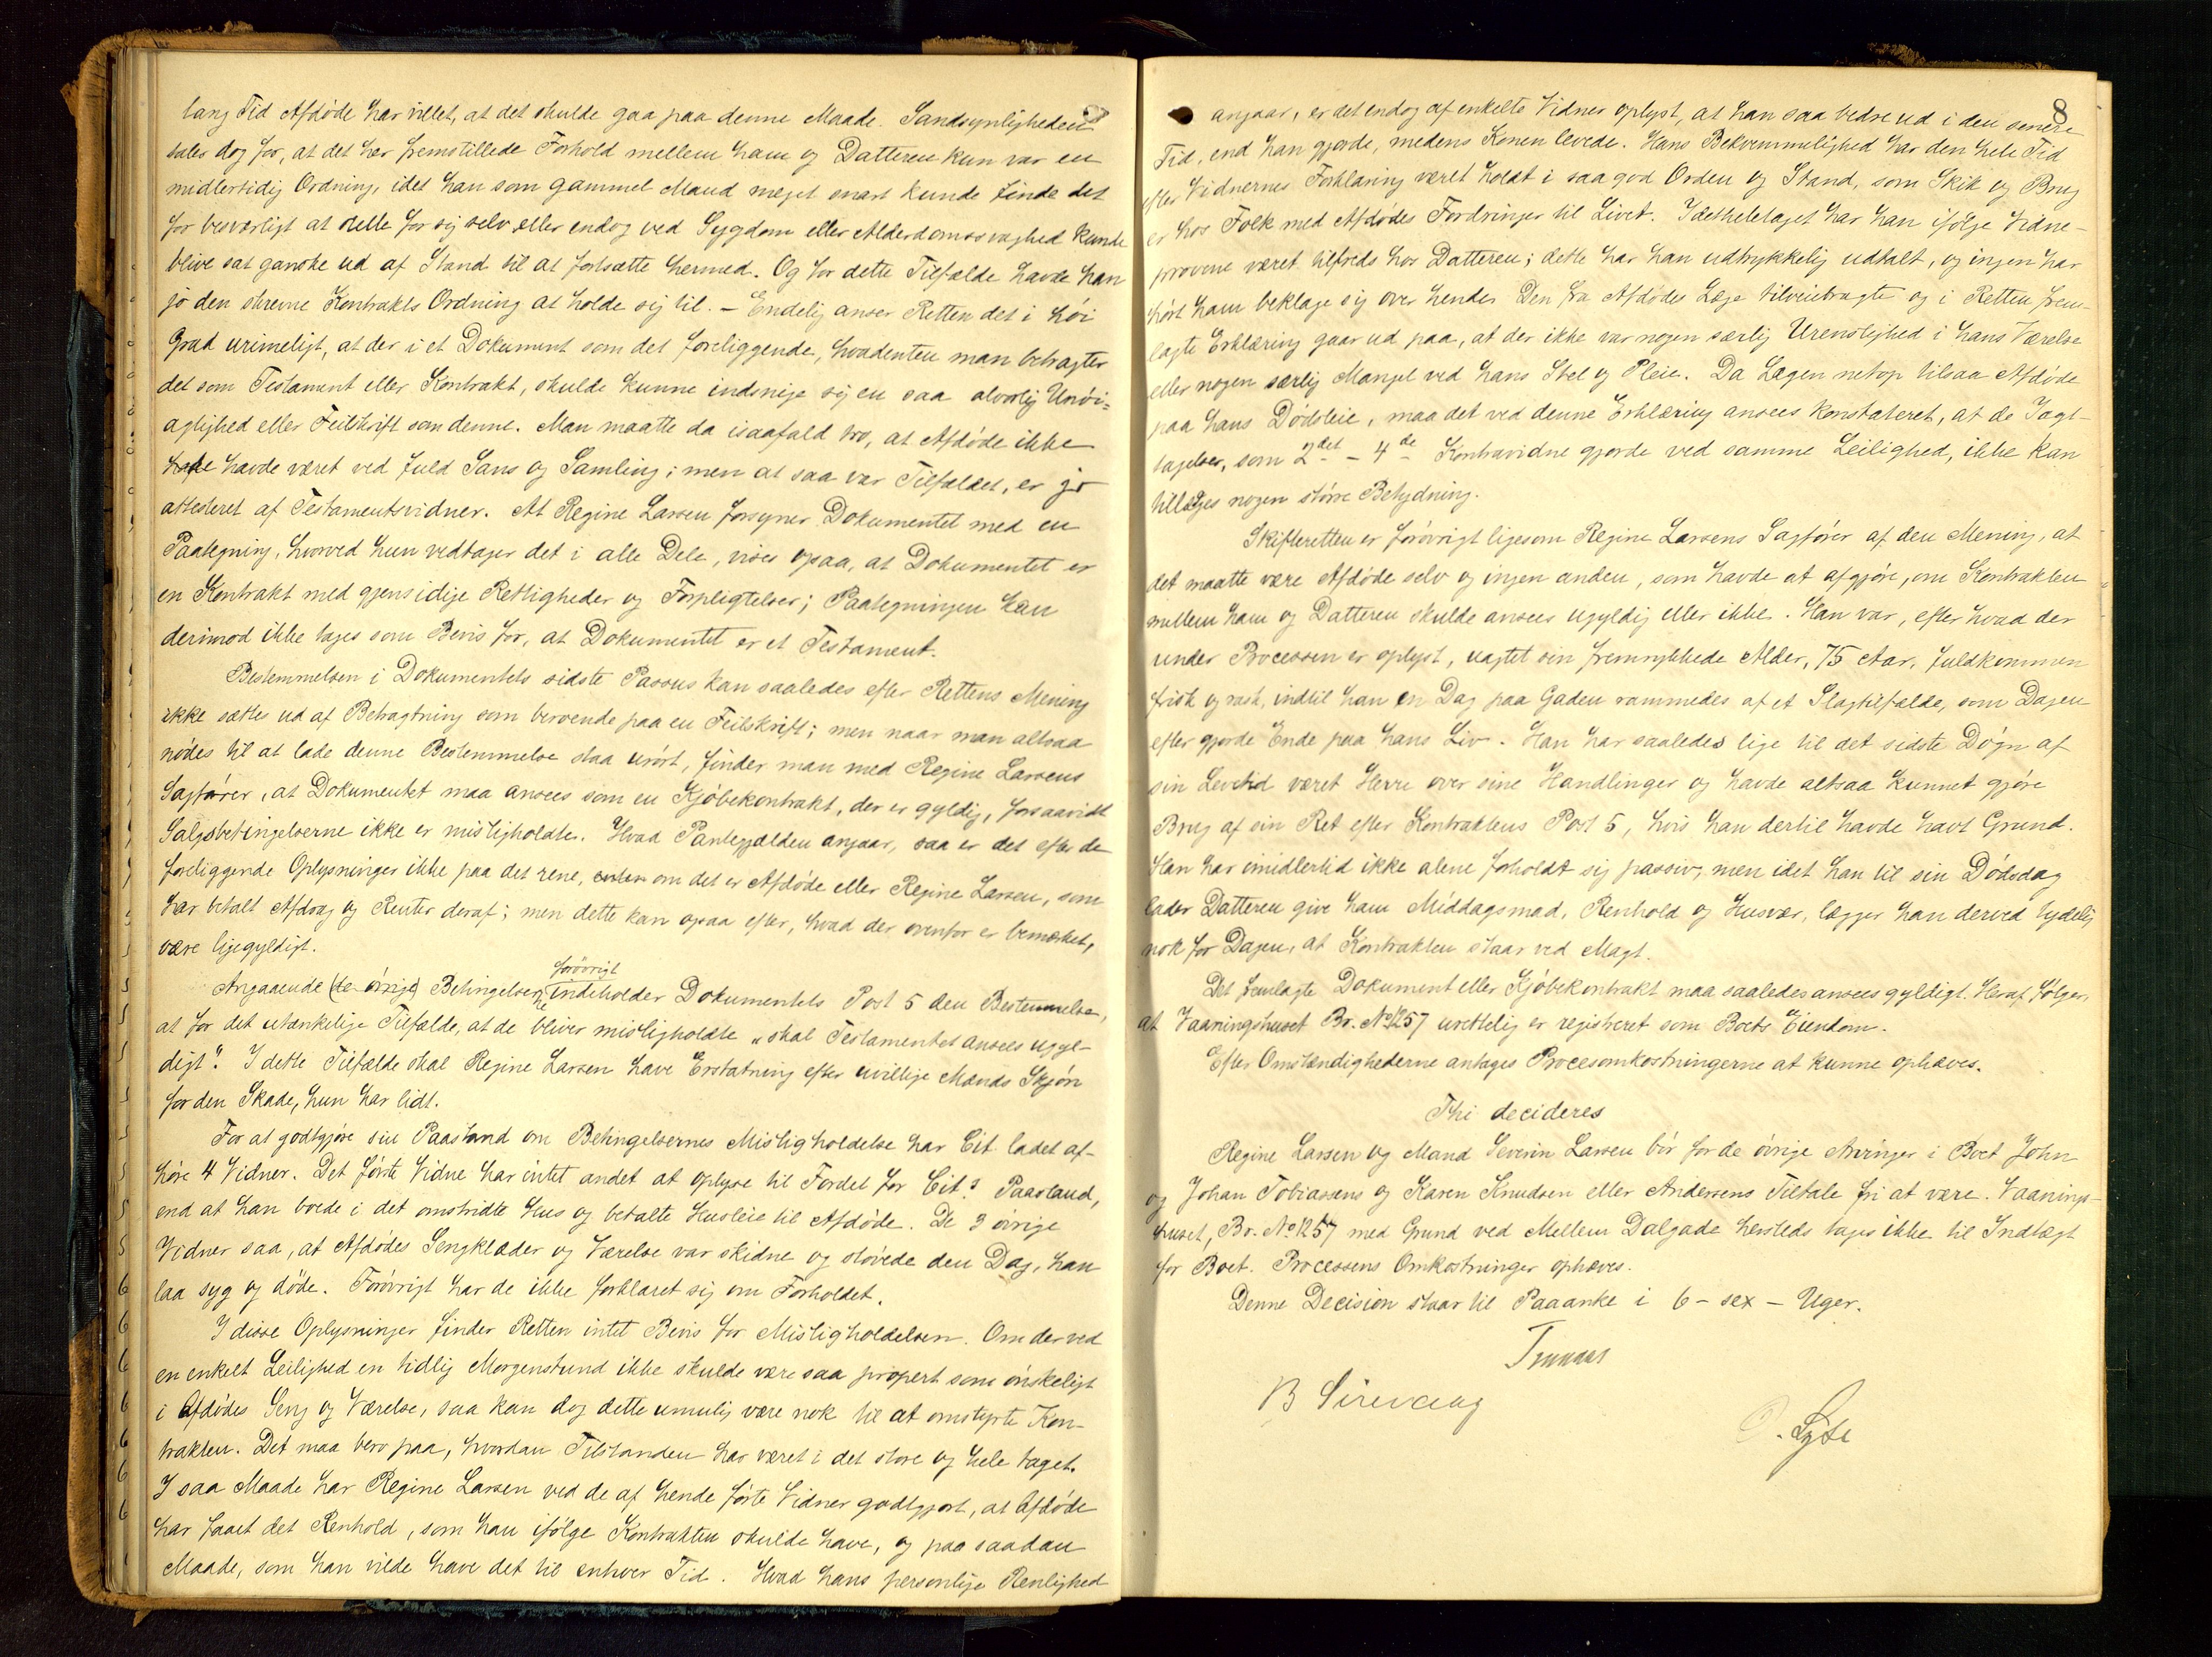 lang Tid Afdøde har villet, at det skulde gaa paa denne Maade. Sandsynligheden
taler dog for, at det her fremstillede Forhold mellem ham og Datteren kun var en
midlertidig Ordning, idet han som gammel Mand meget snart kunde finde det
for besværligt at stelle for sig selv eller endog ved Sygdom eller Alderdomssvaghed kunde
blive sat ganske ud af Stand til at fortsætte hermed. Og for dette Tilfælde havde han
jo den skrevne Kontrakts Ordning at holde sig til. – Endelig anser Retten det i høi
Grad urimeligt, at der i et Dokument som det foreliggende, hvadenten man betragter
det som Testament eller Kontrakt, skulde kunne indsnige sig en saa alvorlig Unøi=
agtighed eller Feilskrift som denne. Man maatte da isaafald tro, at Afdøde ikke
havde været ved fuld Sans og Samling; men at saa var Tilfældet, er jo
attesteret af Testamentsvidner. At Regine Larsen forsyner Dokumentet med en
Paategning, hvorved hun vedtager det i alle Dele, viser ogsaa, at Dokumentet er
en Kontrakt med gjensidige Rettigheder og Forpligtelser; Paategningen kan
derimod ikke tages som Bevis for, at Dokumentet er et Testament.
Bestemmelsen i Dokumentets sidste Passus kan saaledes efter Rettens Mening
ikke sættes ud af Betragtning som beroende paa en Feilskrift; men naar man altsaa
nødes til at lade denne Bestemmelse staa urørt, finder man med Regine Larsens
Sagfører, at Dokumentet maa ansees som en Kjøbekontrakt, der er gyldig, forsaavidt
Salgsbetingelserne ikke er misligholdte. Hvad Pantegjælden angaar, saa er det efter de
foreliggende Oplysninger ikke paa det rene, enten om det er Afdøde eller Regine Larsen, som
har betalt Afdrag og Renter deraf; men dette kan ogsaa efter, hvad der ovenfor er bemærket,
være ligegyldigt.
forøvrigt
Angaaende (de øvrige) Betingelser indeholder Dokumentets Post 5 den Bestemmelse,
at for det utænkelige Tilfælde, at de bliver misligholdte "skal Testamentet ansees ugyl-
digt". I dette Tilfælde skal Regine Larsen have Erstatning efter uvillige Mænds Skjøn
for den Skade, hun har lidt.
For at godtgjøre sin Paastand om Betingelsernes Misligholdelse har Cit. ladet af-
høre 4 Vidner. Det første Vidne har intet andet at oplyse til Fordel for Cit.s Paastand,
end at han boede i det omstridte Hus og betalte Husleie til Afdøde. De 3 øvrige
Vidner saa, at Afdødes Sengklæder og Værelse var skidne og støvede den Dag, han
laa syg og døde. Forøvrigt har de ikke forklaret sig om Forholdet.
I disse Oplysninger finder Retten intet Bevis for Misligholdelsen. Om der ved
en enkelt Leilighed en tidlig Morgenstund ikke skulde være saa propert som ønskeligt
i Afdødes Seng og Værelse, saa kan dog dette umulig være nok til at omstyrte Kon-
trakten. Det maa bero paa, hvordan Tilstanden har været i det store og hele taget.
I saa Maade har Regine Larsen ved de af hende førte Vidner godtgjort, at Afdøde
har faaet det Renhold, som han ifølge Kontrakten skulde have, og paa saadan
Maade, som han vilde have det til enhver Tid. Hvad hans personlige Renlighed
8
angaar, er det endog af enkelte Vidner oplyst, at han saa bedre ud i den senere
Tid, end han gjorde, medens Konen levede. Hans Bekvemmelighed har den hele Tid
efter Vidnernes Forklaring været holdt i saa god Orden og Stand, som Skik og Brug
er hos Folk med Afdødes Fordringer til Livet. Idetheletaget har han ifølge Vidne-
provene været tilfreds hos Datteren; dette har han udtrykkelig udtalt, og ingen har
hørt ham beklage sig over hende. Den fra Afdødes Læge tilveiebragte og i Retten frem-
lagte Erklæring gaar ud paa, at der ikke var nogen særlig Urenslighed i hans Værelse
eller nogen særlig Mangel ved hans Stel og Pleie. Da Lægen netop tilsaa Afdøde
paa hans Dødsleie, maa det ved denne Erklæring ansees konstateret, at de Iagt-
tagelser, som 2det – 4de Kontravidne gjorde ved samme Leilighed, ikke kan
tillægges nogen større Betydning.
Skifteretten er forøvrigt ligesom Regine Larsens Sagfører af den Mening, at
det maatte være Afdøde selv og ingen anden, som havde at afgjøre, om Kontrakten
mellem ham og Datteren skulde ansees ugyldig eller ikke. Han var, efter hvad der
under Processen er oplyst, uagtet sin fremrykkede Alder, 75 Aar, fuldkommen
frisk og rask, indtil han en Dag paa Gaden rammedes af et Slagtilfælde, som Dagen
efter gjorde Ende paa hans Liv. Han har saaledes lige til det sidste Døgn af
sin Levetid været Herre over sine Handlinger og havde altsaa kunnet gjøre
Brug af sin Ret efter Kontraktens Post 5, hvis han dertil havde havt Grund.
Han har imidlertid ikke alene forholdt sig passiv, men idet han til sin Dødsdag
lader Datteren give ham Middagsmad, Renhold og Husvær, lægger han derved tydelig
nok for Dagen, at Kontrakten staar ved Magt.
Det fremlagte Dokument eller Kjøbekontrakt maa saaledes ansees gyldigt. Heraf følger,
at Vaaningshuset Br. No 1257 urettelig er registreret som Boets Eiendom.
Efter Omstændighederne antages Procesomkostningerne at kunne ophæves.
Thi decideres
Regine Larsen og Mand Severin Larsen bør for de øvrige Arvinger i Boet John
og Johan Tobiassens og Karen Knudsen eller Andersens Tiltale fri at være. Vaanings-
huset, Br. No 1257 med Grund ved Mellem Dalgade hersteds tages ikke til Indtægt
for Boet. Processens Omkostninger ophæves.
Denne Decision staar til Paaanke i 6 – sex – Uger.
B Sirevaag
Lyse